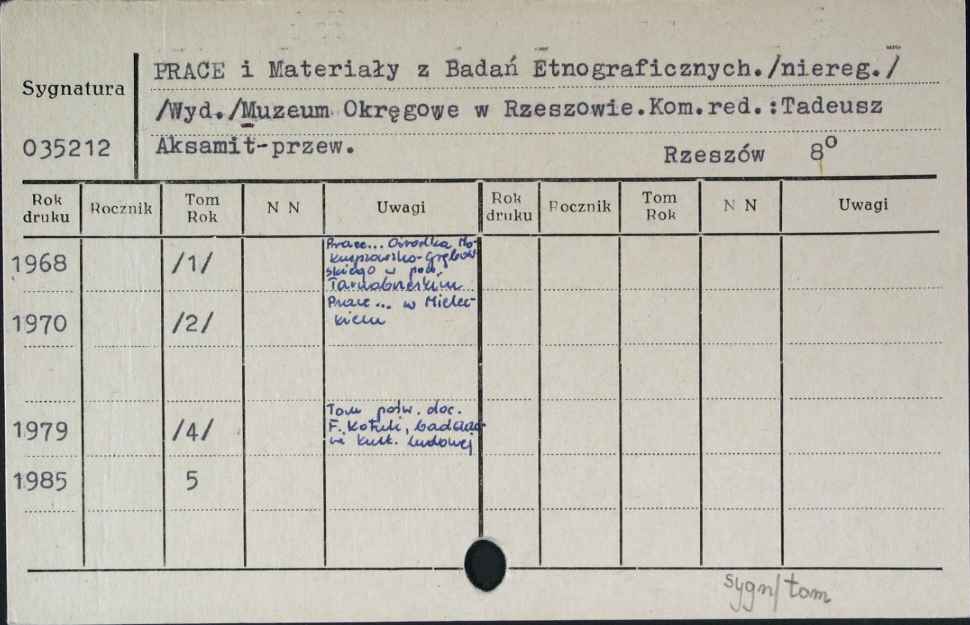 Sygnatura
035212
PRACE i Materiały z Badań Etnograficznych./niereg./
/Wyd./Muzeum Okręgowe w Rzeszowie.Kom.red.:Tadeusz
Aksamit-przew.
Rzeszów 8°
Rok druku Rocznik Tom Rok N N Uwagi Rok druku Rocznik Tom Rok N N Uwagi
1968 /1/ Prace... Ośrodka Mo-
kurzowsko-Grębow
skiego w pow.
Tarnobrzeskim
1970 /2/ Prace... w Mielec-
kiem
1979 /4/ Tom pośw. doc.
F. Kotuli, badaczo-
wi kult. ludowej
1985 5
sygn/tom